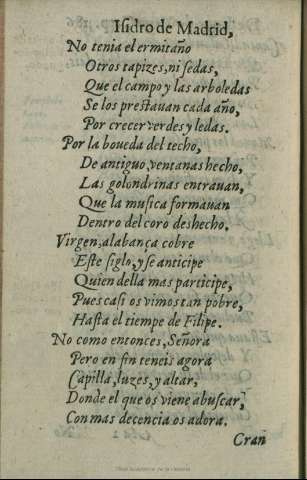 Isidro de Madrid,
No tenia el ermitaño
Otros tapizes, ni sedas,
Que el campo y las arboledas
Se los prestauan cada año,
Por crecer verdes y ledas.
Por la boueda del techo,
De antiguo, ventanas hecho,
Las golondrinas entrauan,
Que la musica formauan
Dentro del coro deshecho.
Virgen, alabança cobre
Este siglo, y se anticipe
Quien della mas participe,
Pues casi os vimos tan pobre,
Hasta el tiempe de Filipe.
No como entonces, Señora
Pero en fin teneis agora
Capilla, luzes, y altar,
Donde el que os viene a buscar,
Con mas decencia os adora.
Cran